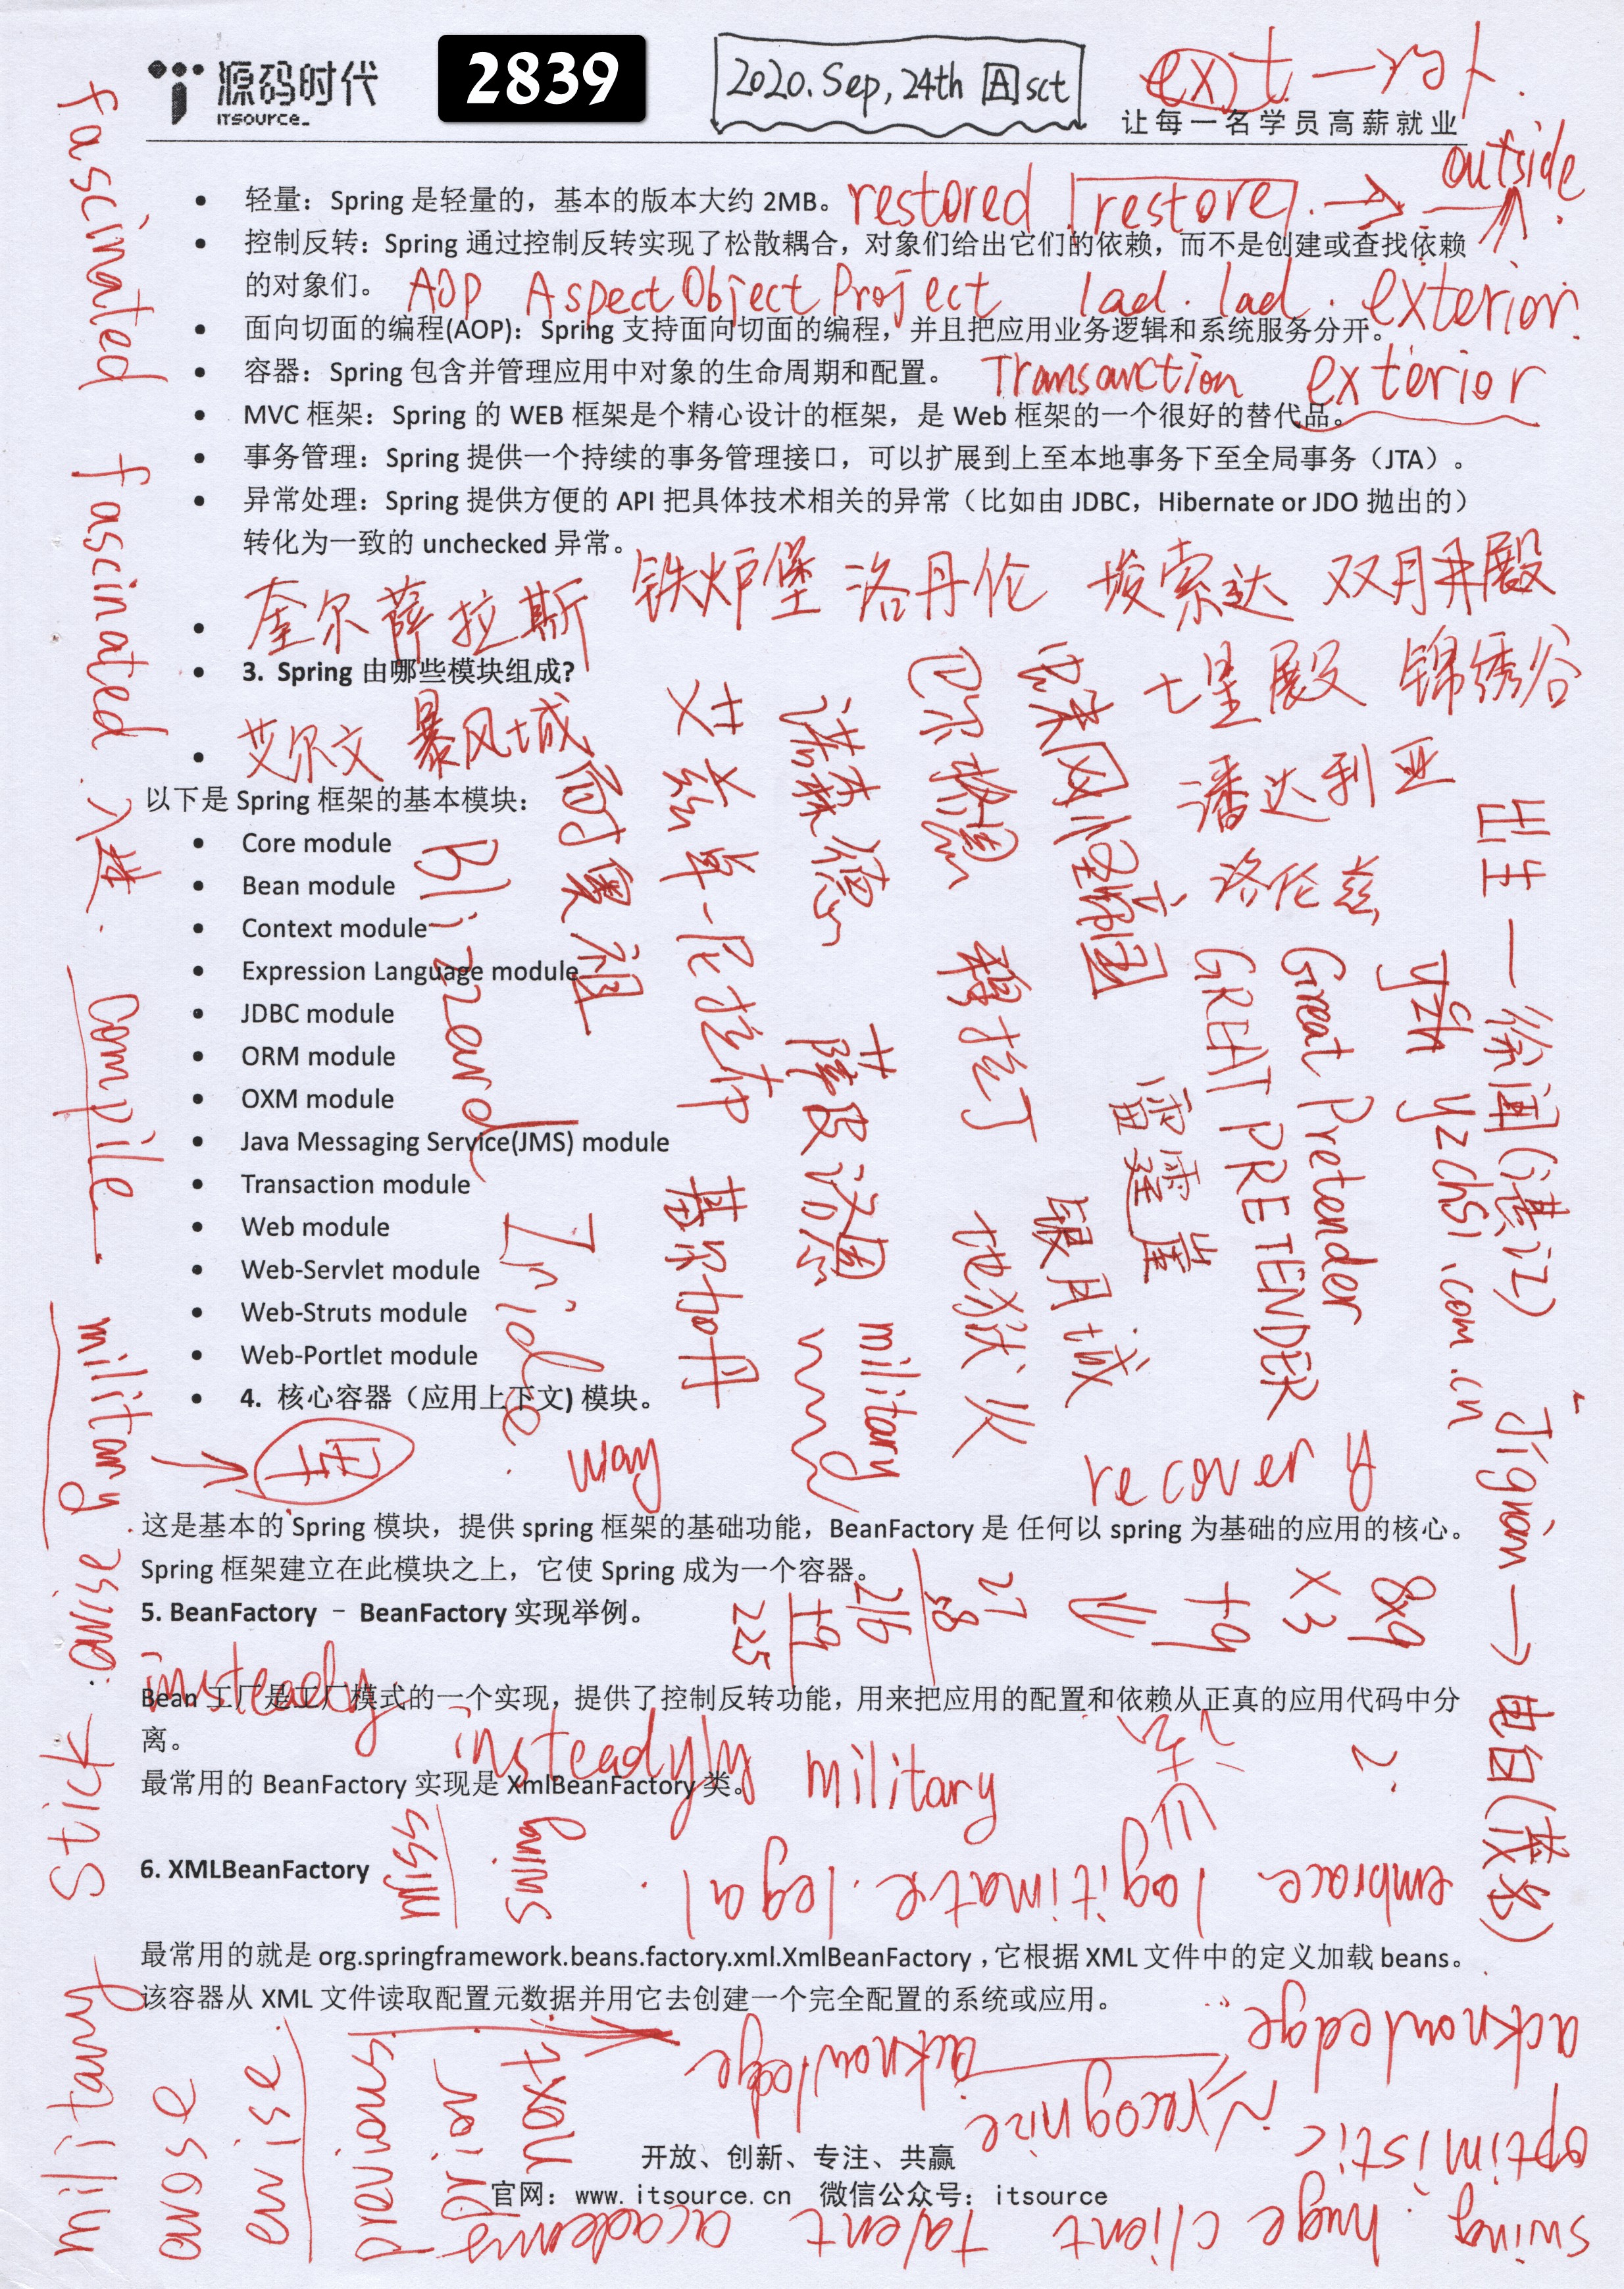 源码时代
ITSOURCE_
2839
2020.Sep,24th 囚sct
ext
让每一名学员高薪就业
outside
• 轻量：Spring 是轻量的，基本的版本大约 2MB。
restored restore
• 控制反转：Spring 通过控制反转实现了松散耦合，对象们给出它们的依赖，而不是创建或查找依赖
的对象们。
AOP Aspect Object Project lad. lad. exterior.
• 面向切面的编程(AOP)：Spring 支持面向切面的编程，并且把应用业务逻辑和系统服务分开。
• 容器：Spring 包含并管理应用中对象的生命周期和配置。
Transanction exterior
• MVC 框架：Spring 的 WEB 框架是个精心设计的框架，是 Web 框架的一个很好的替代品。
• 事务管理：Spring 提供一个持续的事务管理接口，可以扩展到上至本地事务下至全局事务（JTA）。
• 异常处理：Spring 提供方便的 API 把具体技术相关的异常（比如由 JDBC，Hibernate or JDO 抛出的）
转化为一致的 unchecked 异常。
奎尔萨拉斯 铁炉堡 洛丹伦 埃索达 双月殿
• 3. Spring 由哪些模块组成?
七星殿 锦绣谷
艾尔文 暴风城
潘达利亚
洛伦兹
以下是 Spring 框架的基本模块：
• Core module
• Bean module
• Context module
• Expression Language module
• JDBC module
• ORM module
• OXM module
• Java Messaging Service(JMS) module
• Transaction module
• Web module
• Web-Servlet module
• Web-Struts module
• Web-Portlet module
• 4. 核心容器（应用上下文) 模块。
Blizzard
诺森德
穆拉丁
基尔加丹
地狱火
银月城
雷霆崖
military
Great Pretender
GREAT PRETENDER
yzch
yzchsi.com.cn
出生
Jiguan → 电白(茂名)
军
way
recovery
这是基本的 Spring 模块，提供 spring 框架的基础功能，BeanFactory 是 任何以 spring 为基础的应用的核心。
Spring 框架建立在此模块之上，它使 Spring 成为一个容器。
5. BeanFactory – BeanFactory 实现举例。
8x9
x3
+9
27
x8
216
+9
225
insteady
Bean 工厂是工厂模式的一个实现，提供了控制反转功能，用来把应用的配置和依赖从正真的应用代码中分
离。
insteadyly military
最常用的 BeanFactory 实现是 XmlBeanFactory 类。
miss
swing
embrace logitimate. legal.
6. XMLBeanFactory
最常用的就是 org.springframework.beans.factory.xml.XmlBeanFactory ，它根据 XML 文件中的定义加载 beans。
该容器从 XML 文件读取配置元数据并用它去创建一个完全配置的系统或应用。
acknowledge
acknowledge
recognize
optimistic
swing. huge client talent academs
previous
fascinated fascinated.入迷.
Compile
military
stick
military
开放、创新、专注、共赢
官网：www.itsource.cn 微信公众号：itsource